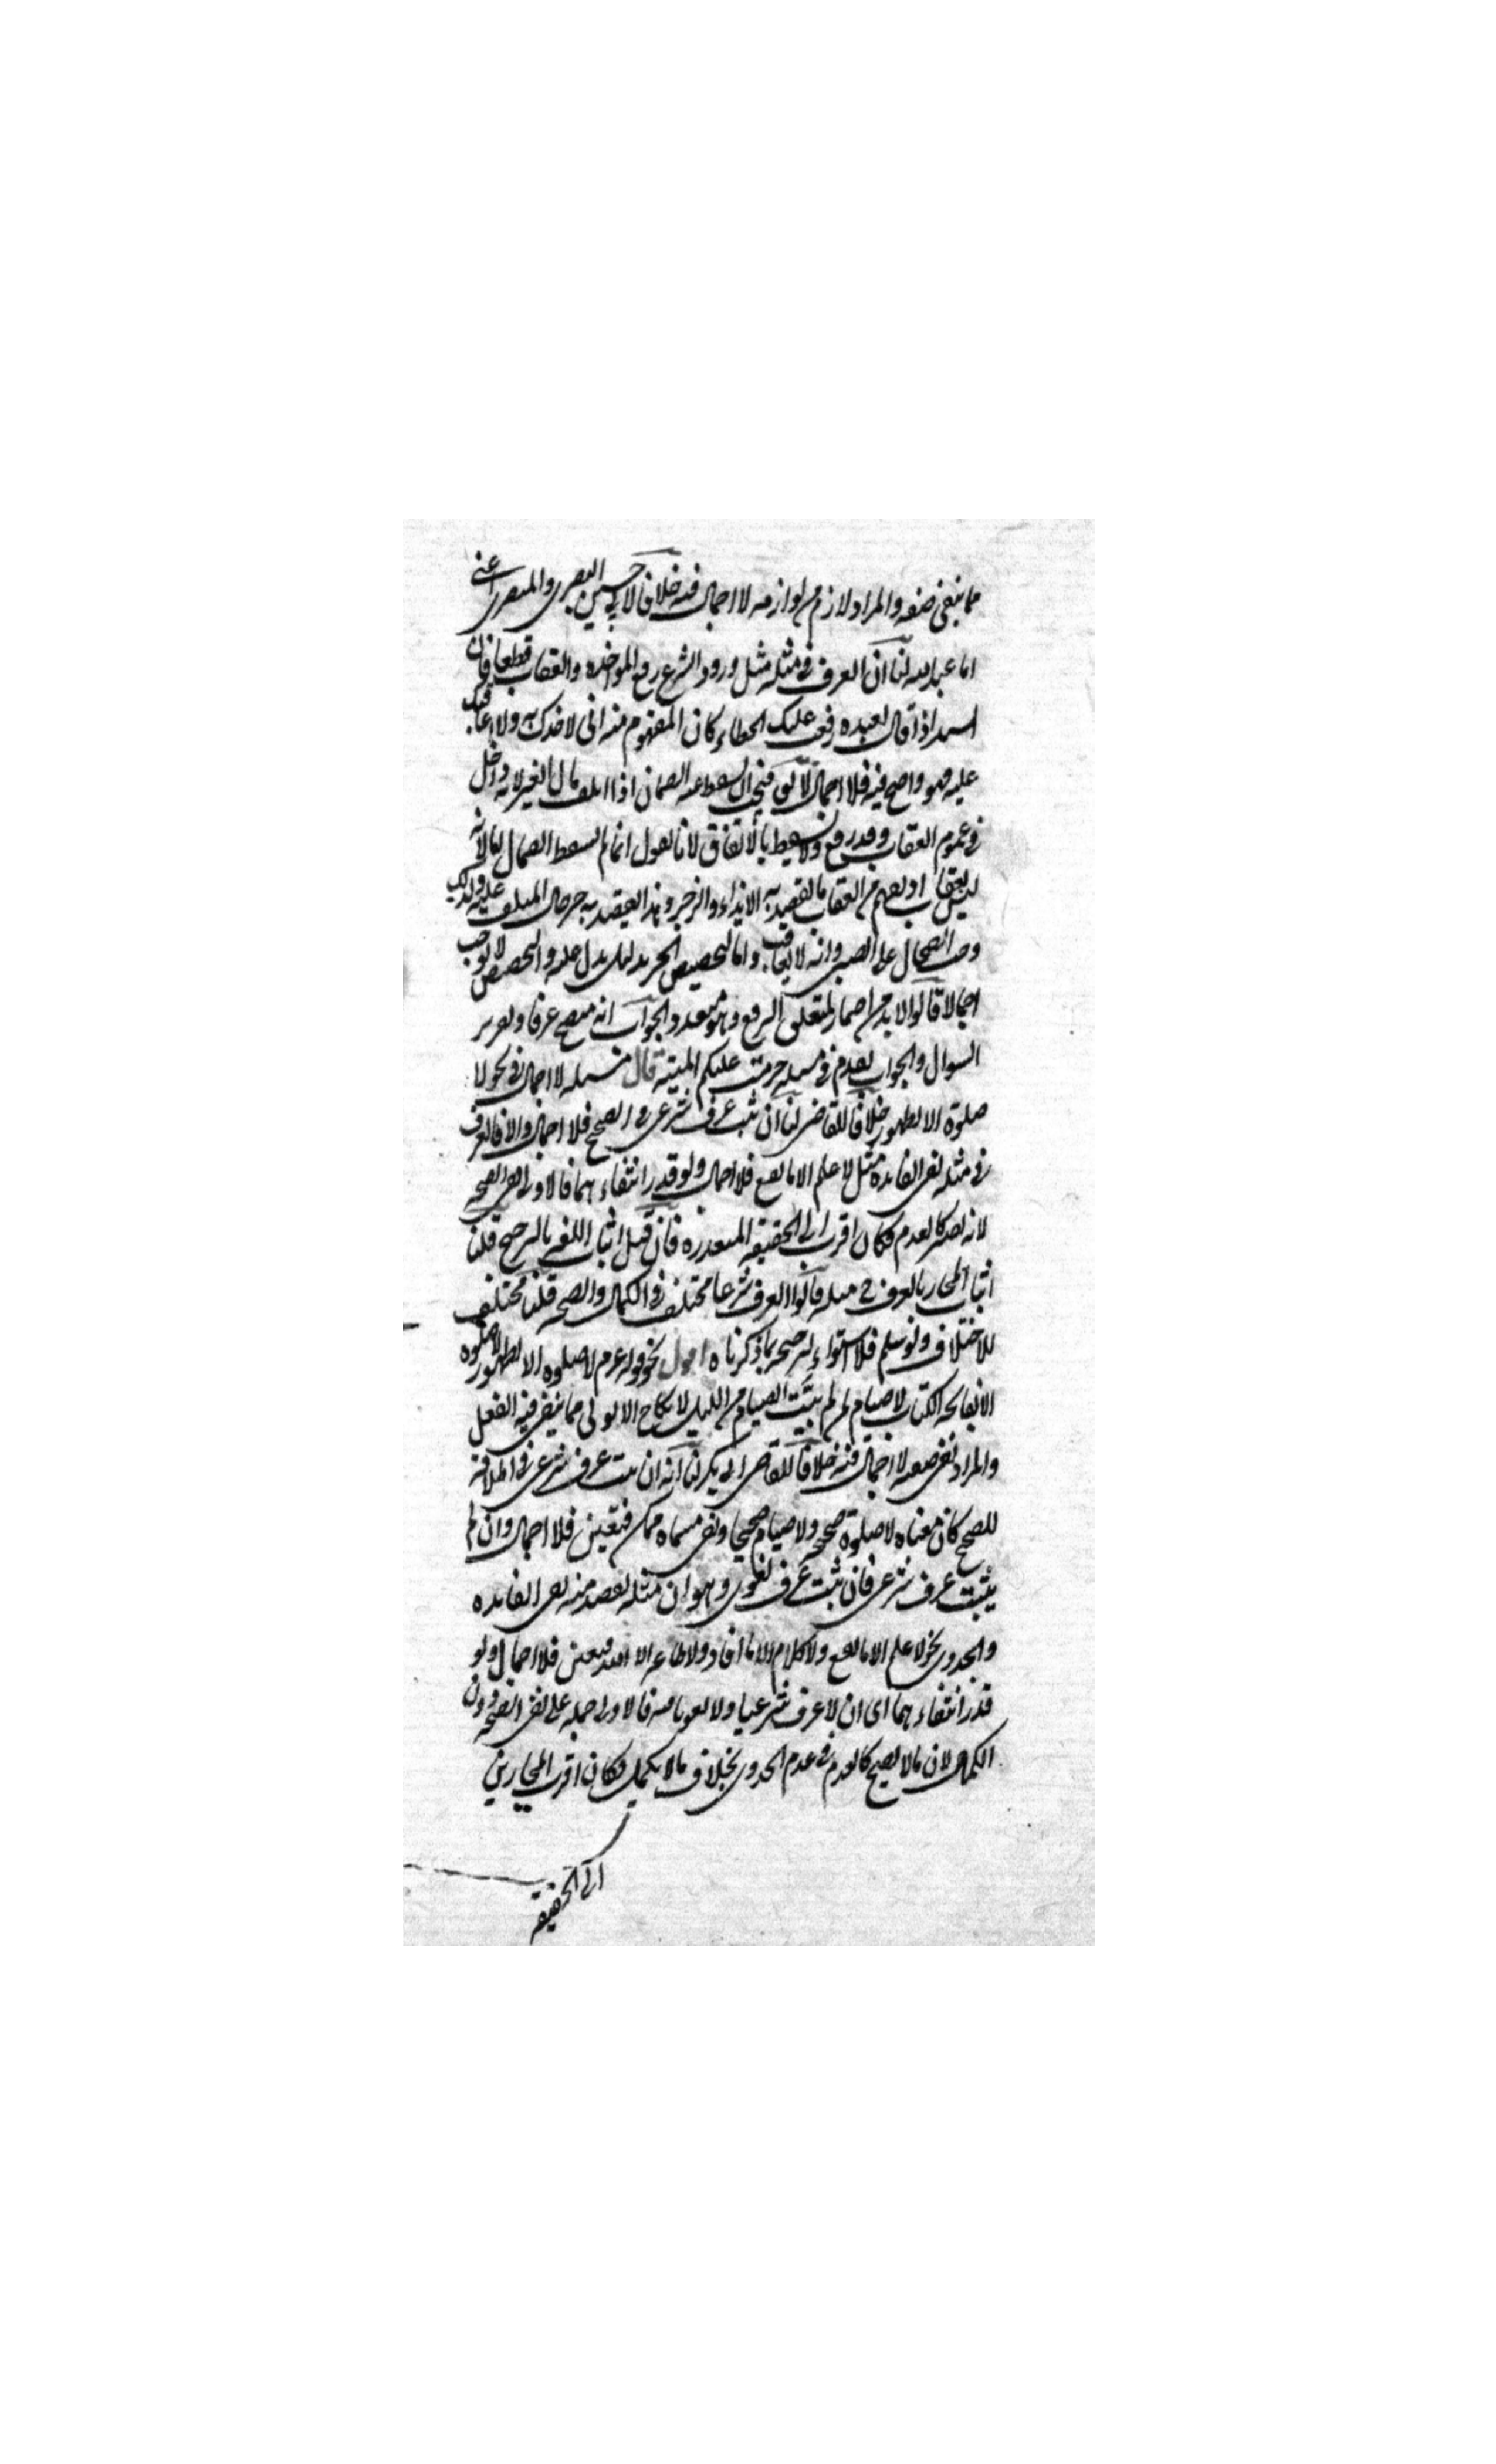 مما ينفى صفه والمراد لازم من لوازمه لا اجمال فيه خلافا لابي الحسين البصرى والبصرى اعنى
ابا عبد الله لنا ان العرف فى مثله قبل ورود الشرع رفع المواخذه والعقاب قطعا فان
السيد اذا قال لعبده رفعت عليك الخطاء كان المفهوم منه انى لا اخذك به ولا اعاقبك
عليه فهو واضح فيه فلا اجمال لا يقال فيجب ان يسقط عنه الضمان اذا اتلف مال الغير لانه داخل
فى عموم العقاب وقد رفع ولا يسقط بالاتفاق لانا نقول انما لم يسقط الضمان اما لانه
ليس بعقاب اذ يفهم من العقاب ما يقصد به الايذاء والزجر وهذا يقصد به جبر حال المتلف عليه ولذلك
وجب الضمان على الصبى وانه لا يعاقب واما لتخصيص الخبر بدليل يدل عليه والتخصيص لا يوجب
اجمالا قالوا لا بد من اضمار لمتعلق الرفع وهو متعدد والجواب انه متضح عرفا وتقرير
السوال والجواب تقدم فى مسيله حرمت عليكم الميتة قال مسيله لا اجمال فى نحو لا
صلوة الا بطهور خلافا للقاضى لنا ان ثبت عرف شرعى فى الصحيح فلا اجمال والا فالعرف
فى مثله نفى الفايده مثل لا علم الا ما نفع فلا اجمال ولو قدر انتفاء هما فالاولى نفى الصحه
لانه يصير كالعدم فكان اقرب الى الحقيقة المتعذرة فان قيل اثبات اللغه بالترجيح قلنا
اثبات المجاز بالعرف فى مثله قالوا العرف شرعا مختلف فى الكمال والصحه قلنا مختلف
للاختلاف ولو سلم فلا استواء لترجحه بما ذكرناه اقول نحو قوله عم لا صلوه الا بطهور لا صلوه
الا بفاتحه الكتاب لا صيام لمن لم يبيت الصيام من الليل لا نكاح الا بولى مما ينفى فيه الفعل
والمراد نفى صفته لا اجمال فيه خلافا للقاضى ابى بكر لنا انه ان ثبت عرف شرعى فى اطلاقه
للصحيح كان معناه لا صلوة صحيحه ولا صيام صحيحا ونفى مسماه ممكن فتعين فلا اجمال وان لم
يثبت عرف شرعى فان ثبت عرف لغوى وهو ان مثله يقصد منه نفى الفايده
والجدوى نحو لا علم الا ما نفع ولا كلام الا ما افاد ولا طاعه الا لله فيتعين فلا اجمال ولو
قدر انتفاء هما اى ان لا عرف شرعيا ولا لغويا فيه فالاولى حمله على نفى الصحه دون
الكمال لان ما لا يصح كالعدم فى عدم الجدوى بخلاف ما لا يكمل فكان اقرب المجازين
الى الحقيقة